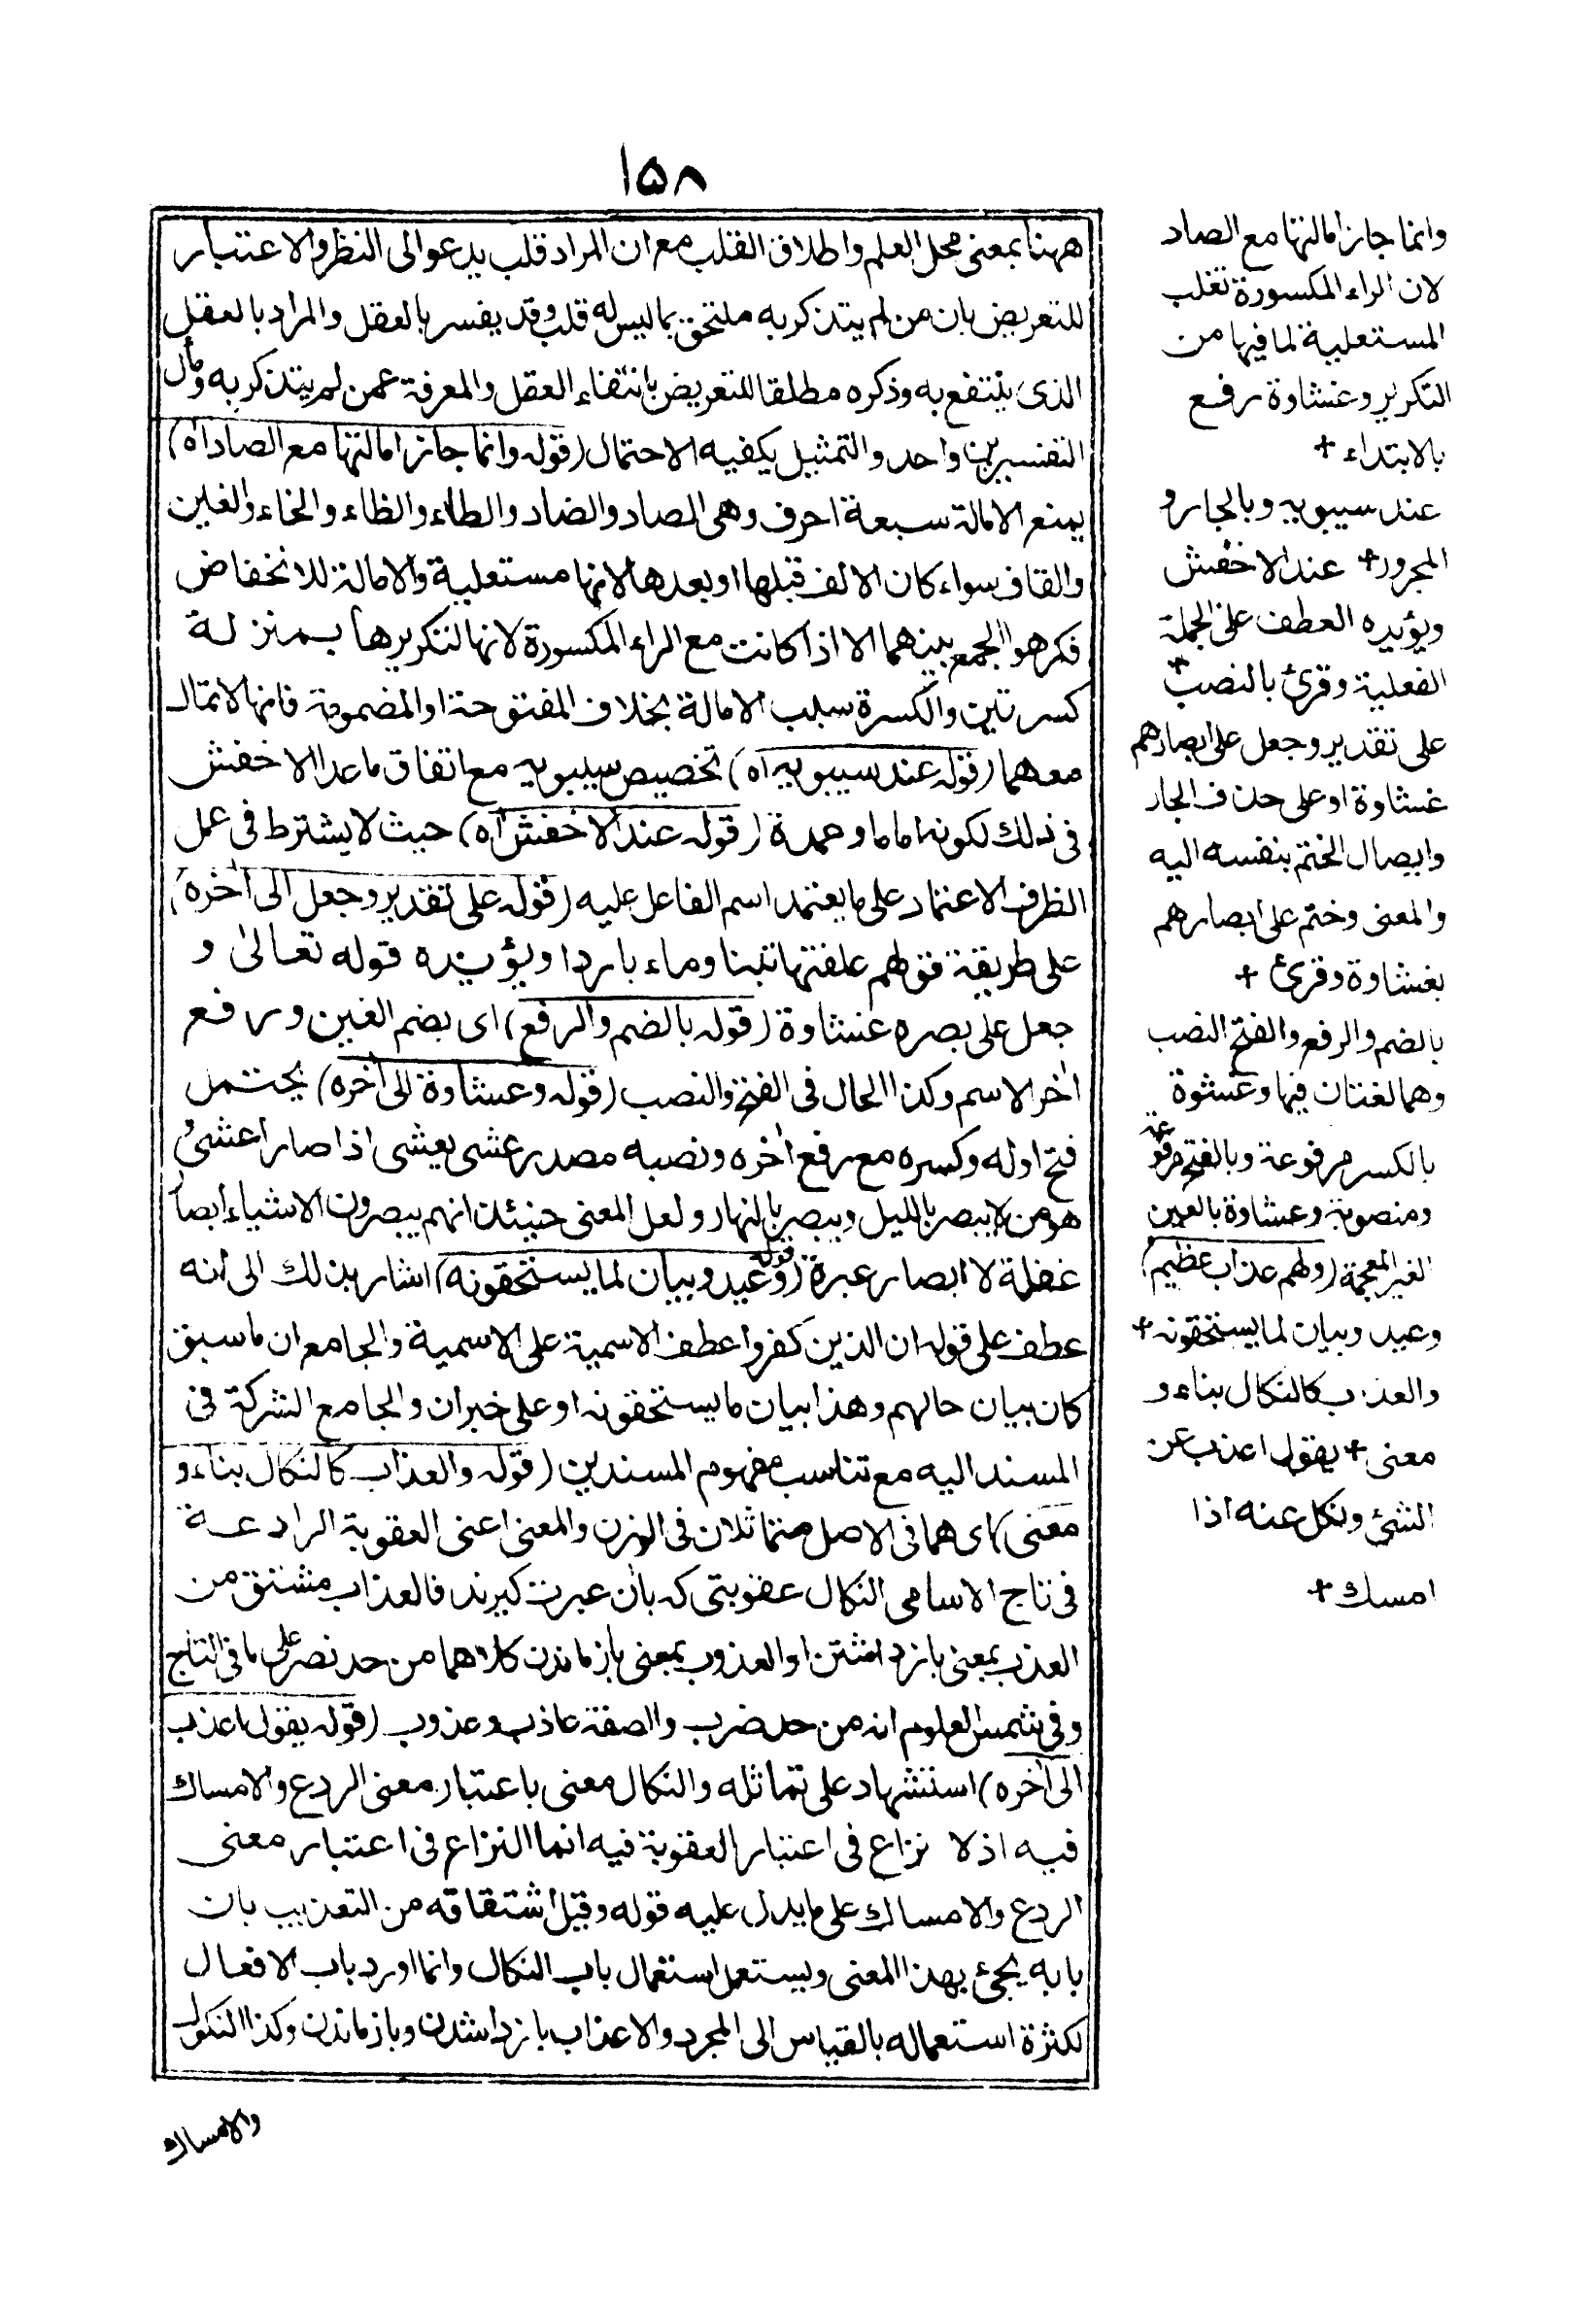 ١٥٨
ههنا بمعنى محل العلم واطلاق القلب مع ان المراد قلب يدعو الى النظر والاعتبار
للتعريض بان من لم يتذكر به ملتحق بما ليس له قلب وقد يفسر بالعقل والمراد بالعقل
الذى ينتفع به وذكره مطلقا للتعريض بانتفاء العقل والمعرفة عمن لم يتذكر به ومآل
التفسيرين واحد والتمثيل يكفيه الاحتمال (قوله وانما جاز امالتها مع الصاد اه)
يمنع الامالة سبعة احرف وهى الصاد والضاد والطاء والظاء والخاء والغين
والقاف سواء كان الالف قبلها او بعدها لانها مستعلية والامالة للانخفاض
فكرهوا الجمع بينهما الا اذا كانت مع الراء المكسورة لانها لتكريرها بمنزلة
كسرتين والكسرة سبب الامالة بخلاف المفتوحة او المضمومة فانها لا تمال
معهما (قوله عند سيبويه اه) تخصيص سيبويه مع اتفاق ما عدا الاخفش
فى ذلك لكونه اماما وعمدة (قوله عند الاخفش اه) حيث لا يشترط فى عمل
الظرف الاعتماد على ما يعتمد اسم الفاعل عليه (قوله على تقدير وجعل الى اخره)
على طريقة قولهم علفتها تبنا وماء باردا ويؤيده قوله تعالى و
جعل على بصره غشاوة (قوله بالضم والرفع) اى بضم الغين ورفع
اخر الاسم وكذا الحال فى الفتح والنصب (قوله وعشاوة الى اخره) يحتمل
فتح اوله وكسره مع رفع اخره ونصبه مصدر عشى يعشى اذا صار اعشى
هو من لا يبصر بالليل ويبصر بالنهار ولعل المعنى حينئذ انهم يبصرون الاشياء ابصار
غفلة لا ابصار عبرة (قوله وعيد وبيان لما يستحقونه) اشار بذلك الى انه
عطف على قوله ان الذين كفروا عطف الاسمية على الاسمية والجامع ان ما سبق
كان بيان حالهم وهذا بيان ما يستحقونه او على خبر ان والجامع الشركة فى
المسند اليه مع تناسب مفهوم المسندين (قوله والعذاب كالنكال بناء و
معنى) اى هما فى الاصل متماثلان فى الوزن والمعنى اعنى العقوبة الرادعة
فى تاج الاسامى النكال عقوبتى كه بان عبرت كيرند فالعذاب مشتق من
العذب بمعنى باز داشتن او العذوب بمعنى باز ماندن كلاهما من حد نصر على ما فى التاج
وفى شمس العلوم انه من حد ضرب والصفة عاذب وعذوب (قوله يقول اعذب
الى اخره) استشهاد على تماثله والنكال معنى باعتبار معنى الردع والامساك
فيه اذ لا نزاع فى اعتبار العقوبة فيه انما النزاع فى اعتبار معنى
الردع والامساك على ما يدل عليه قوله وقيل اشتقاقه من التعذيب بان
بابه يجئ بهذا المعنى ويستعمل استعمال باب النكال وانما اورد باب الافعال
لكثرة استعماله بالقياس الى المجرد والاعذاب باز داشدن وباز ماندن وكذا النكول
والامساك
وانما جاز امالتها مع الصاد
لان الراء المكسورة تغلب
المستعلية لما فيها من
التكرير وغشاوة رفع
بالابتداء +
عند سيبويه وبالجار و
المجرور + عند الاخفش
ويؤيده العطف على الجملة
الفعلية وقرئ بالنصب +
على تقدير وجعل على ابصارهم
غشاوة او على حذف الجار
وايصال الختم بنفسه اليه
والمعنى وختم على ابصارهم
بغشاوة وقرئ +
بالضم والرفع والفتح النصب
وهما لغتان فيها وغشوة
بالكسر مرفوعة وبالفتح مرفوعة
ومنصوبة وعشاوة بالعين
الغير المعجمة (ولهم عذاب عظيم)
وعيد وبيان لما يستحقونه +
والعذاب كالنكال بناء و
معنى + يقول اعذب عن
الشئ ونكل عنه اذا
امسك +